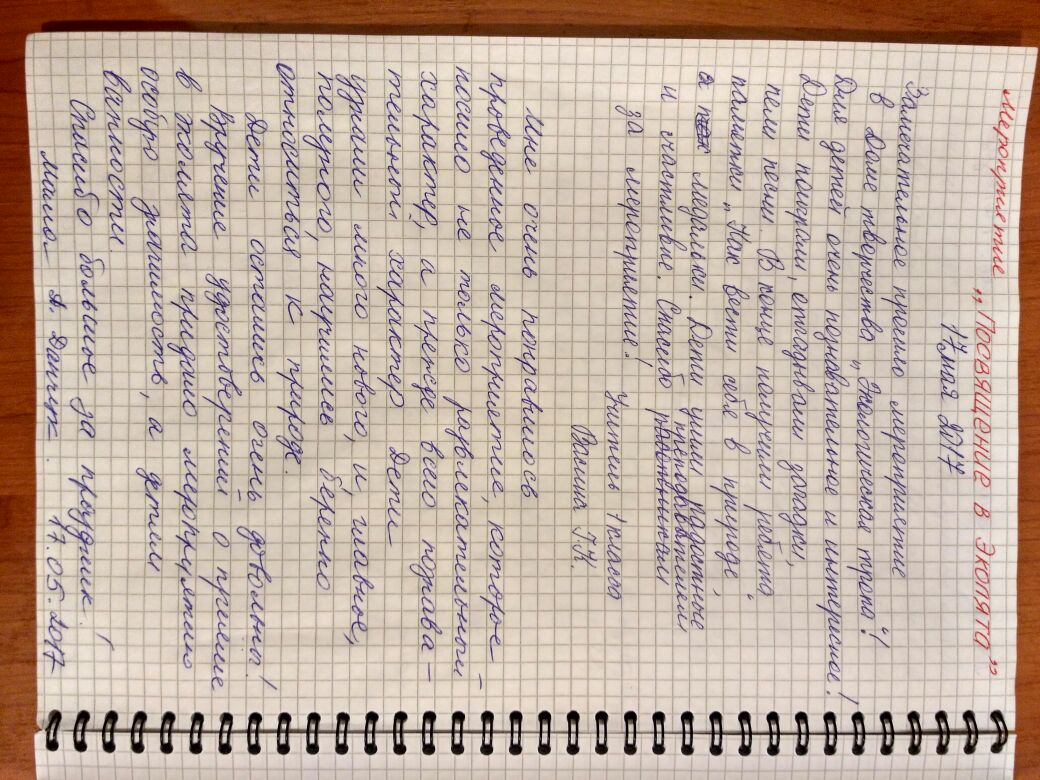 Мероприятие „Посвящение в Эколята”
17 мая 2017
Замечательное прошло мероприятие
в Доме творчества „Экологическая тропа“!
Для детей очень познавательное и интересное!
Дети поиграли, отгадывали загадки,
пели песни. В конце получили ребята
памятки „Как вести себя в природе“,
а медальки. Дети ушли радостные
и счастливые. Спасибо преподавателям
за мероприятие!
Учитель 1 класса
Васина Г.К.
Мне очень понравилось
проведенное мероприятие, которое
носило не только развлекательный
характер, а прежде всего познава-
тельный характер Дети
узнали много нового, и, главное,
полезного, научились бережно
относиться к природе.
Дети остались очень довольны!
Вручение удостоверений о приеме
в эколята придало мероприятию
особую значимость, а детям
важности.
Спасибо большое за праздник!
Мама Данчик. 17.05.2017